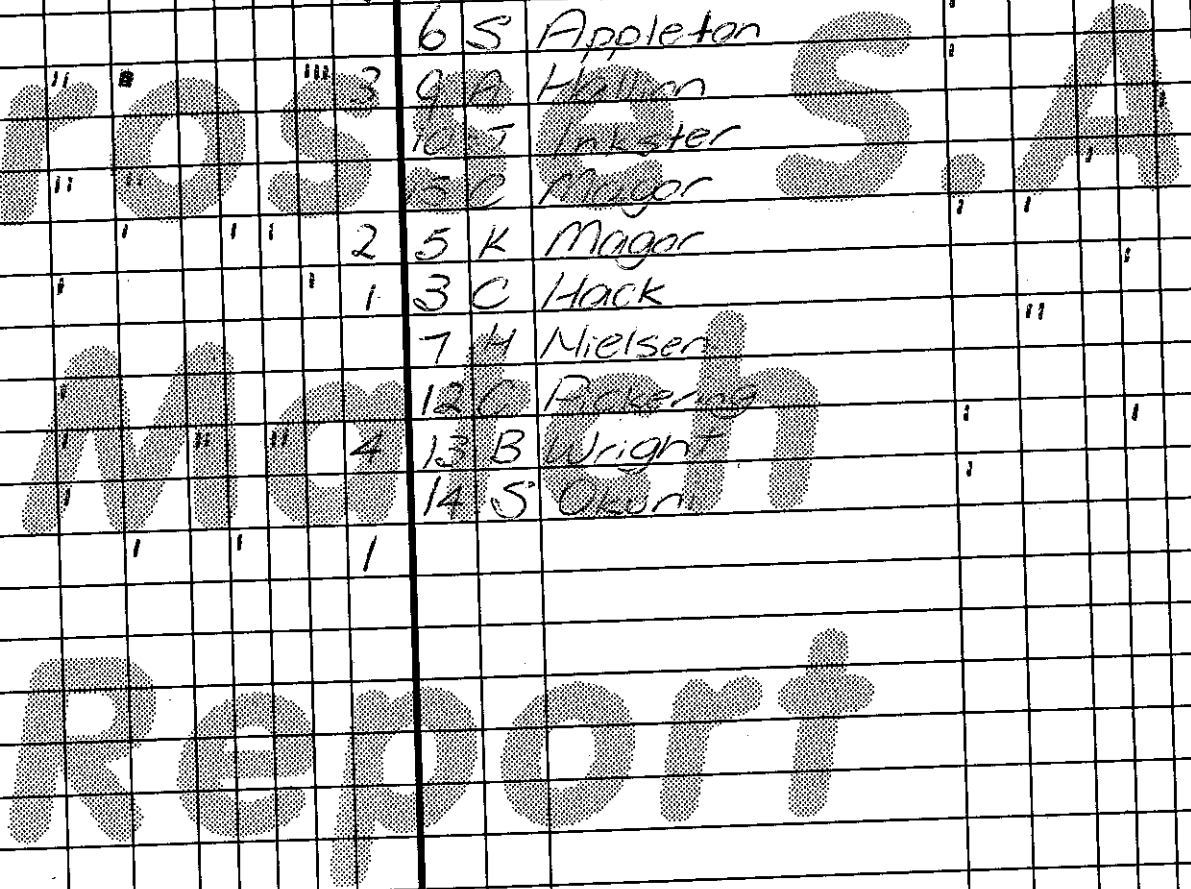 6 S Appleton
3 9 A Hallion
10 J Inkster
15 C Magor
2 5 K Magor
1 3 C Hack
7 H Nielsen
12 C Pickering
4 13 B Wright
14 S Okuni
1
rosse S.A
Match
Report